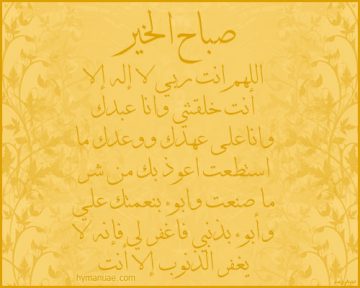 صباح الخير
اللهم انت ربي لا إله إلا
أنت خلقتني وانا عبدك
وانا على عهدك ووعدك ما
استطعت اعوذ بك من شر
ما صنعت وابوء بنعمتك علي
وأبوء بذنبي فاغفر لي فإنه لا
يغفر الذنوب إلا انت
hymanuae.com